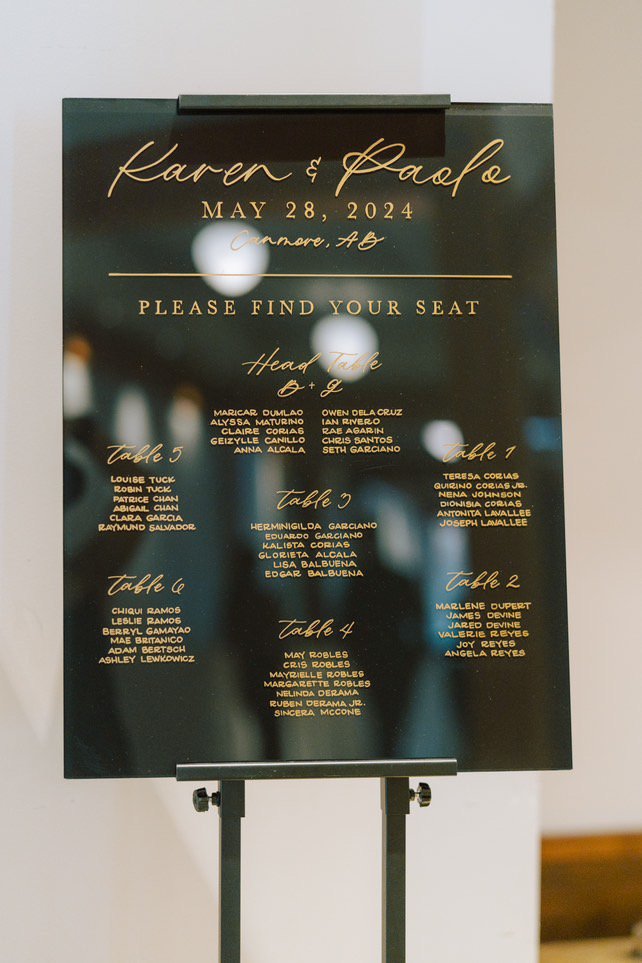 Karen & Paolo
MAY 28, 2024
Canmore, AB
PLEASE FIND YOUR SEAT
Head Table
B + G
MARICAR DUMLAO
ALYSSA MATURINO
CLAIRE CORIAS
GEIZYLLE CANILLO
ANNA ALCALA
OWEN DELA CRUZ
IAN RIVERO
RAE AGARIN
CHRIS SANTOS
SETH GARCIANO
table 5
LOUISE TUCK
ROBIN TUCK
PATRICE CHAN
ABIGAIL CHAN
CLARA GARCIA
RAYMUND SALVADOR
table 6
CHIQUI RAMOS
LESLIE RAMOS
BERRYL GAMAYAO
MAE BRITANICO
ADAM BERTSCH
ASHLEY LEWKOWICZ
table 3
HERMINIGILDA GARCIANO
EDUARDO GARCIANO
KALISTA CORIAS
GLORIETA ALCALA
LISA BALBUENA
EDGAR BALBUENA
table 4
MAY ROBLES
CRIS ROBLES
MAYRIELLE ROBLES
MARGARETTE ROBLES
NELINDA DERAMA
RUBEN DERAMA JR.
SINCERA MCCONE
table 1
TERESA CORIAS
QUIRINO CORIAS JR.
NENA JOHNSON
DIONISIA CORIAS
ANTONITA LAVALLEE
JOSEPH LAVALLEE
table 2
MARLENE DUPERT
JAMES DEVINE
JARED DEVINE
VALERIE REYES
JOY REYES
ANGELA REYES